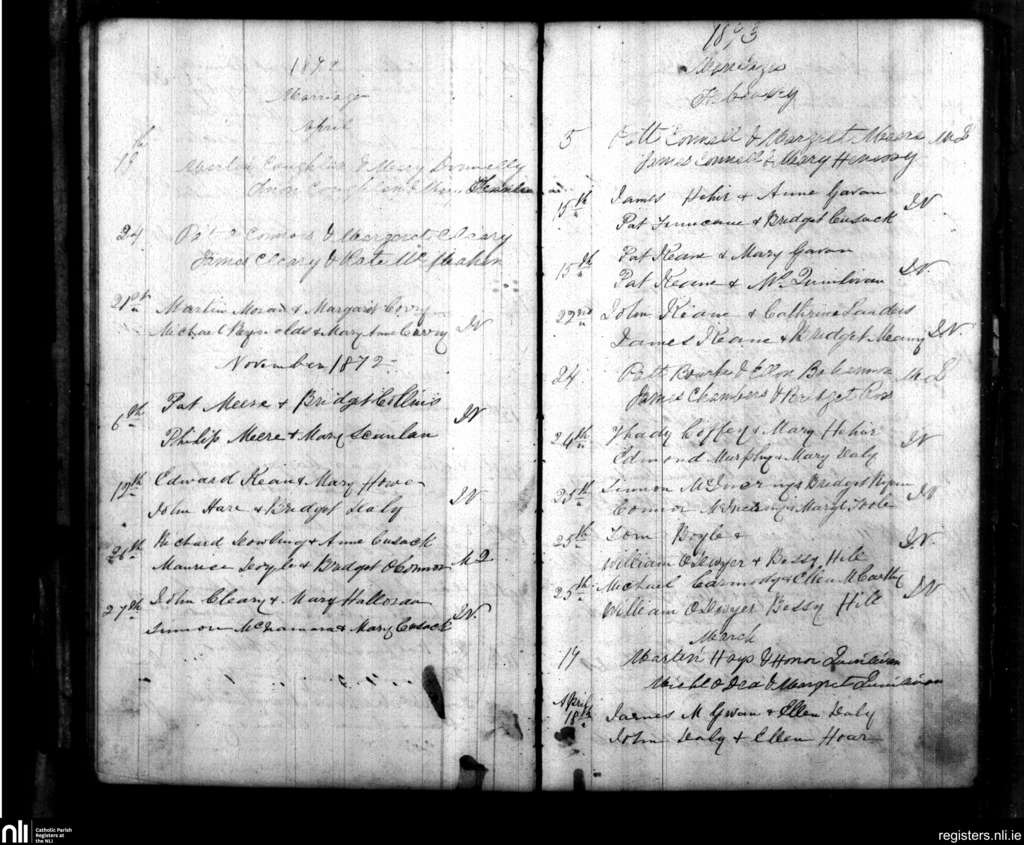 1872
Marriage
April
18th Martin Coughlan & Mary Donnelly
Coughlan & Mary Scanlan
24 Pat O Connors & Margaret Cleary
James Cleary & Kate Mc Mahon
21st Martin Moran & Margaret Corry
Michael Reynolds & Mary Anne Corry DV
November 1872
6th Pat Meere & Bridget Collins
Philip Meere & Mary Scanlan DV
19th Edward Kean & Mary Howe
John Hare & Bridget Daly DV
26th Richard Dowling & Anne Cusack
Maurise Doyle & Bridget O Connor
27th John Cleary & Mary Halloran
Simmon McNamara & Mary Cusack DV.
1873
Marriage
February
5 Patt Connell & Margret Meere
James Connell & Mary Henessy
15th James Hehir & Anne Gavan
Pat Finucane & Bridget Cusack DV
15th Pat Keane & Mary Gavan
Pat Keane & Quinlivan DV.
22nd John Keane & Cathrine Sanders
James Keane & Bridget Meaney DV.
24 Patt Bourke & Ellen
James Chambers & Bridget
24th Thady Coffey & Mary Hehir
Edmond Murphy & Mary Daly DV
25th Simmon McInerny & Bridget
Connor McInerny & Mary Toole DV
25th Tom Boyle &
William O'Dwyer & Bessy Hill DV.
25th Michael Carmody & Ellen McCarthy
William O'Dwyer Bessy Hill DV
March
19 Martin Hays & Honor Quinlivan
Michl O Dea & Margret Quinlivan
April
18th James M Gwan & Ellen Daly
John Daly & Ellen Hoar
nli
Catholic Parish
Registers at
the NLI
registers.nli.ie